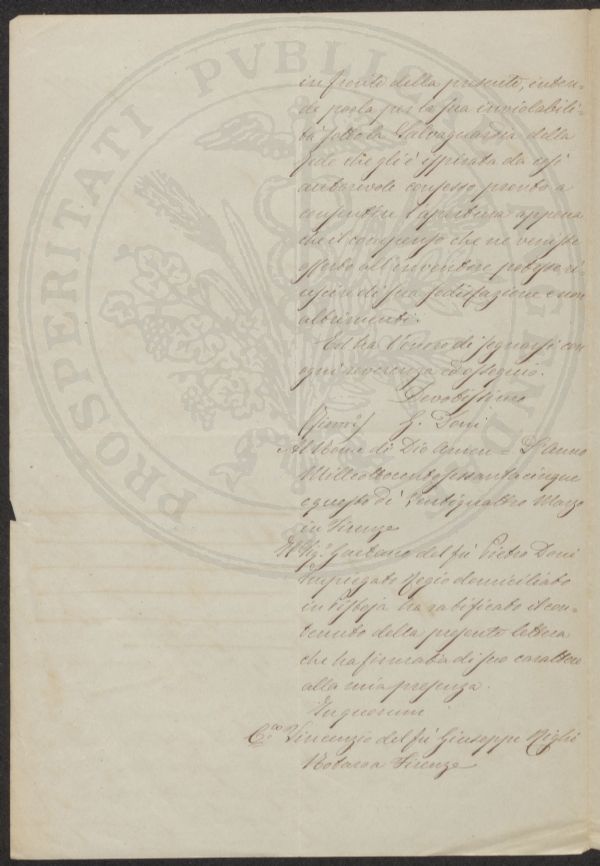 in fronte della presente, inten-
de porla per la sua inviolabili-
tà sotto la Salvaguardia della
fede che gli è ispirata da così
autorevole consesso pronto a
consentire l'apertura appena
che il compenso che ne venisse
offerto all'inventore potesse ri-
uscire di sua sodisfazione e non
altrimenti.
Ed ha l'onore di segnarsi con
ogni reverenza ed ossequio.
Devotissimo
(firm) G. Doni
Al Nome di Dio Amen = L'Anno
Milleottocentosessantacinque
e questo dì Ventiquattro Marzo
in Firenze
Il Sig. Gaetano del fù Pietro Doni
Impiegato Regio domiciliato
in Pistoja ha ratificato il con-
tenuto della presente lettera
che ha firmata di suo carattere
alla mia presenza.
In quorum
Vincenzio del fù Giuseppe Migli
Notaro a Firenze
PROSPERITATI PVBLICAE AVGENDAE